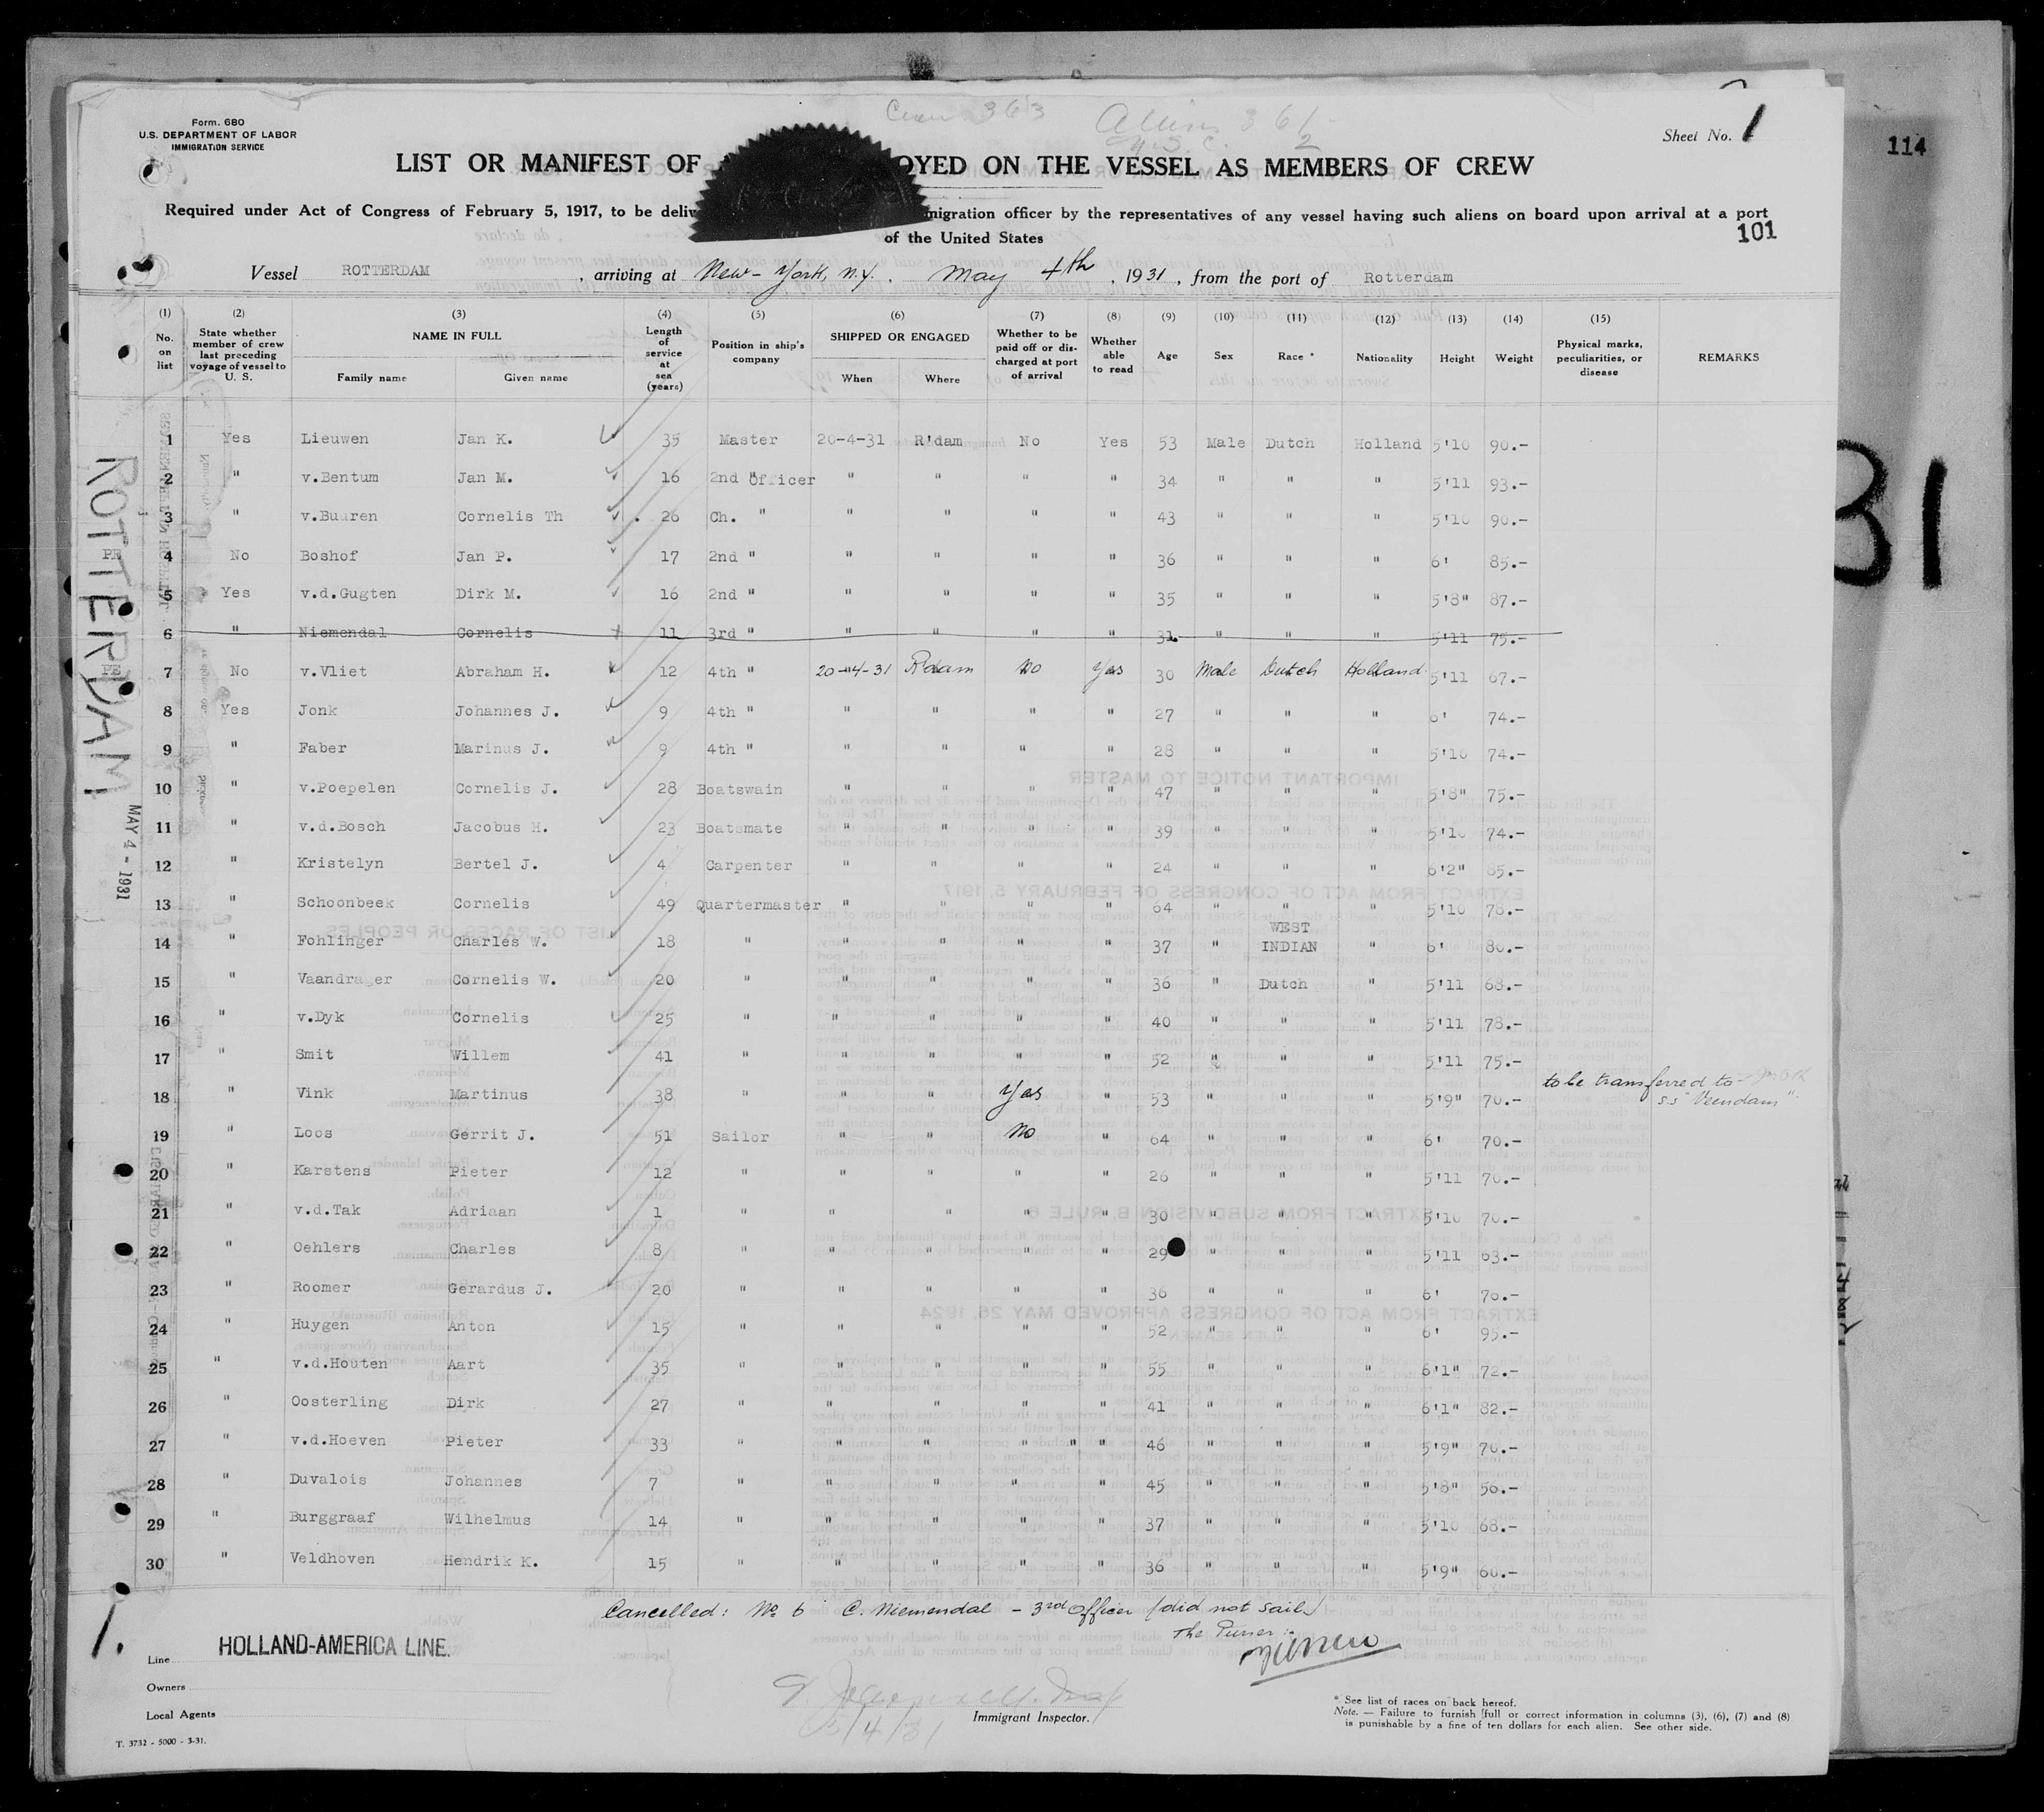 Form. 680
U.S. DEPARTMENT OF LABOR
IMMIGRATION SERVICE
Crew 363
Aliens 361
U.S.C. 2
Sheet No. 1
114
LIST OR MANIFEST OF OYED ON THE VESSEL AS MEMBERS OF CREW
Required under Act of Congress of February 5, 1917, to be deliv migration officer by the representatives of any vessel having such aliens on board upon arrival at a port
of the United States
101
Vessel ROTTERDAM , arriving at New-York, N.Y. May 4th , 1931 , from the port of Rotterdam
(1) No. on list (2) State whether member of crew last preceding voyage of vessel to U. S. (3) NAME IN FULL Family name Given name (4) Length of service at sea (years) (5) Position in ship's company (6) SHIPPED OR ENGAGED When Where (7) Whether to be paid off or discharged at port of arrival (8) Whether able to read (9) Age (10) Sex (11) Race * (12) Nationality (13) Height (14) Weight (15) Physical marks, peculiarities, or disease REMARKS
1 Yes Lieuwen Jan K. 35 Master 20-4-31 R'dam No Yes 53 Male Dutch Holland 5'10 90.-
2 " v.Bentum Jan M. 16 2nd Officer " " " " 34 " " " 5'11 93.-
3 " v.Buuren Cornelis Th 26 Ch. " " " " " 43 " " " 5'10 90.-
PE 4 No Boshof Jan P. 17 2nd " " " " " 36 " " " 6' 85.-
5 Yes v.d.Gugten Dirk M. 16 2nd " " " " " 35 " " " 5'8" 87.-
6 " Niemendal Cornelis 11 3rd " " " " " 31 " " " 5'11 75.-
PE 7 No v.Vliet Abraham H. 12 4th " 20-4-31 R'dam No Yes 30 Male Dutch Holland 5'11 67.-
8 Yes Jonk Johannes J. 9 4th " " " " " 27 " " " 6' 74.-
9 " Faber Marinus J. 9 4th " " " " " 28 " " " 5'10 74.-
10 " v.Poepelen Cornelis J. 28 Boatswain " " " " 47 " " " 5'8" 75.-
11 " v.d.Bosch Jacobus H. 23 Boatsmate " " " " 39 " " " 5'10 74.-
12 " Kristelyn Bertel J. 4 Carpenter " " " " 24 " " " 6'2" 85.-
13 " Schoonbeek Cornelis 49 Quartermaster " " " " 64 " " " 5'10 78.-
14 " Fohlinger Charles W. 18 " " " " " 37 " WEST INDIAN " 6' 80.-
15 " Vaandrager Cornelis W. 20 " " " " " 36 " Dutch " 5'11 68.-
16 " v.Dyk Cornelis 25 " " " " " 40 " " " 5'11 78.-
17 " Smit Willem 41 " " " " " 52 " " " 5'11 75.-
18 " Vink Martinus 38 " " " Yes " 53 " " " 5'9" 70.- to be transferred to s.s "Veendam"
19 " Loos Gerrit J. 51 Sailor " " No " 64 " " " 6' 70.-
20 " Karstens Pieter 12 " " " " " 26 " " " 5'11 70.-
21 " v.d.Tak Adriaan 1 " " " " " 30 " " " 5'10 70.-
22 " Oehlers Charles 8 " " " " " 29 " " " 5'11 63.-
23 " Roomer Gerardus J. 20 " " " " " 36 " " " 6' 70.-
24 " Huygen Anton 15 " " " " " 52 " " " 6' 95.-
25 " v.d.Houten Aart 35 " " " " " 55 " " " 6'1" 72.-
26 " Oosterling Dirk 27 " " " " " 41 " " " 6'1" 82.-
27 " v.d.Hoeven Pieter 33 " " " " " " 46 " " " 5'9" 70.-
28 " Duvalois Johannes 7 " " " " " 45 " " " 5'8" 56.-
29 " Burggraaf Wilhelmus 14 " " " " " 37 " " " 5'10 68.-
30 " Veldhoven Hendrik K. 15 " " " " " 36 " " " 5'9" 60.-
ROTTERDAM
MAY 4 - 1931
31
Cancelled: No 6 C. Niemendal - 3rd Officer (did not sail)
The Purser:
1.
Line HOLLAND-AMERICA LINE.
Owners
Local Agents
5/4/31
Immigrant Inspector.
* See list of races on back hereof.
Note. — Failure to furnish full or correct information in columns (3), (6), (7) and (8)
is punishable by a fine of ten dollars for each alien. See other side.
T. 3732 - 5000 - 3-31.